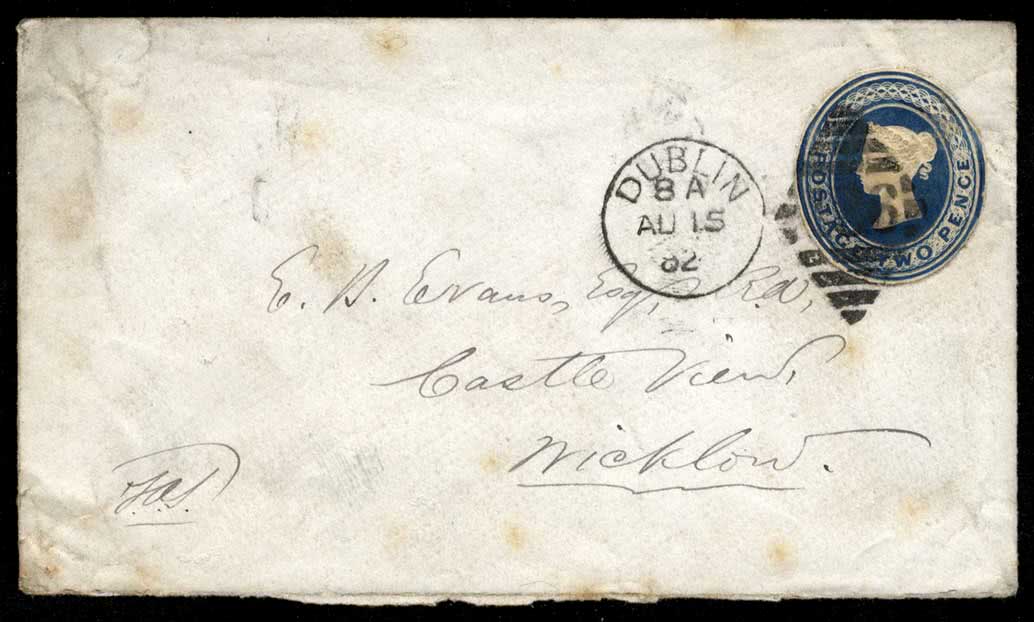 POSTAGE TWO PENCE
DUBLIN
8 A
AU 15
82
E. B. Evans, Esq., R.A.,
Castle View,
Wicklow.